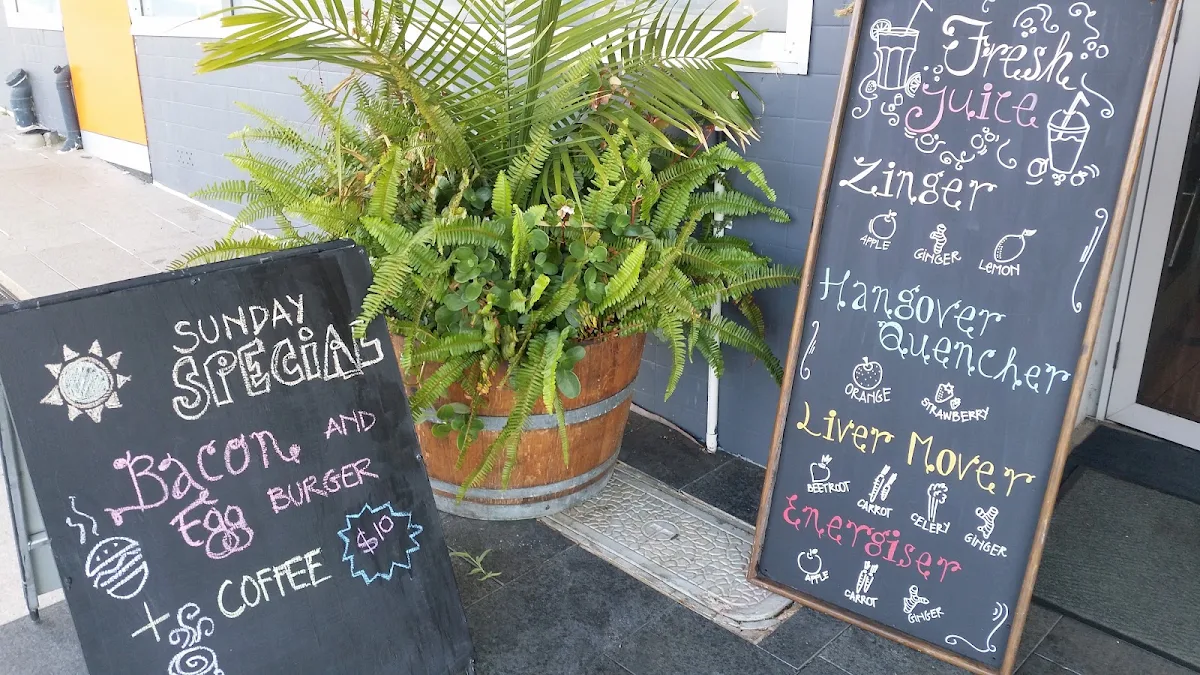 SUNDAY
SPECIAL
Bacon AND
Egg BURGER
$10
COFFEE
+
Fresh
Juice
Zinger
APPLE GINGER LEMON
Hangover
Quencher
ORANGE STRAWBERRY
Liver Mover
BEETROOT CARROT CELERY GINGER
Energiser
APPLE CARROT GINGER